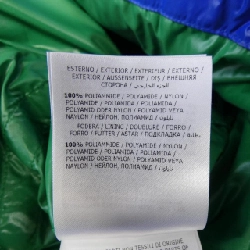 ESTERNO / EXTERIOR / EXTERIEUR / EXTERNO /
EXTERIOR / AUSSENSEITE / DIŞ / ВНЕШНЯЯ
СТОРОНА /
100% POLIAMMIDE / POLYAMIDE / NYLON /
POLYAMIDE / POLIAMIDA / POLIAMIDA /
POLYAMID ODER NYLON / POLYAMID VEYA
NAYLON / НЕЙЛОН, ПОЛИАМИД /
FODERA / LINING / DOUBLURE / FORRO /
FORRO / FUTTER / ASTAR / ПОДКЛАДКА /
100% POLIAMMIDE / POLYAMIDE / NYLON /
POLYAMIDE / POLIAMIDA / POLIAMIDA /
POLYAMID ODER NYLON / POLYAMID VEYA
NAYLON / НЕЙЛОН, ПОЛИАМИД /